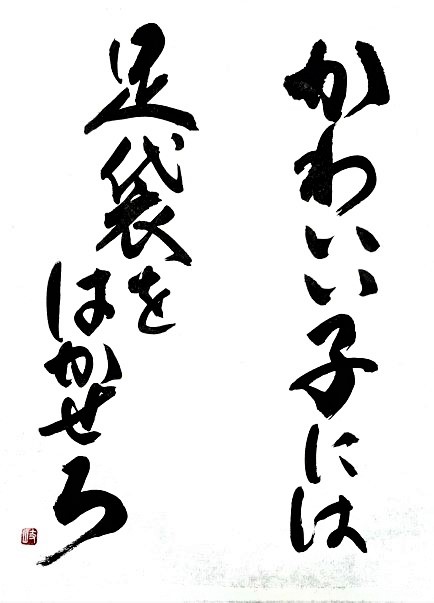 かわいい子には
足袋を
はかせろ